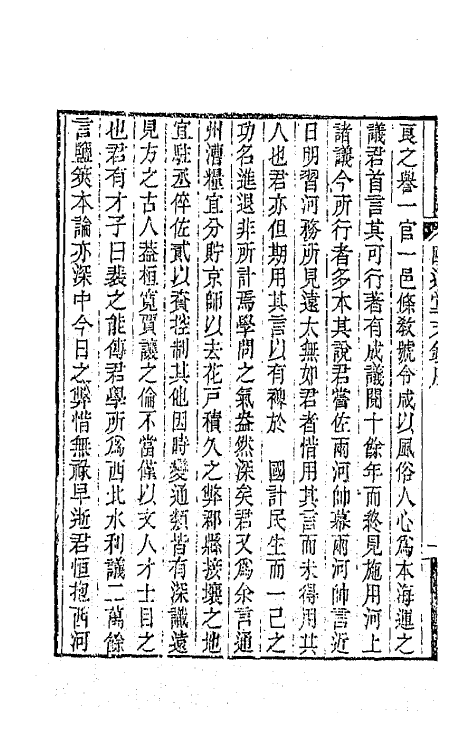 良之譽一官一邑條敎號令咸以風俗人心爲本海運之
議君首言其可行著有成議閱十餘年而終見施用河上
諸議今所行者多本其說君嘗佐兩河帥幕兩河帥言近
日明習河務所見遠大無如君者惜用其言而未得用其
人也君亦但期用其言以有裨於　國計民生而一己之
功名進退非所計焉學問之氣盎然深矣君又爲余言通
州漕糧宜分貯京師以去花戸積久之弊郡縣接壤之地
宜駐丞倅佐貳以資控制其他因時變通類皆有深識遠
見方之古人蓋桓寬賈讓之倫不當僅以文人才士目之
也君有才子曰裴之能傳君學所爲西北水利議二萬餘
言鹽筴本論亦深中今日之弊惜無祿早逝君恒抱西河